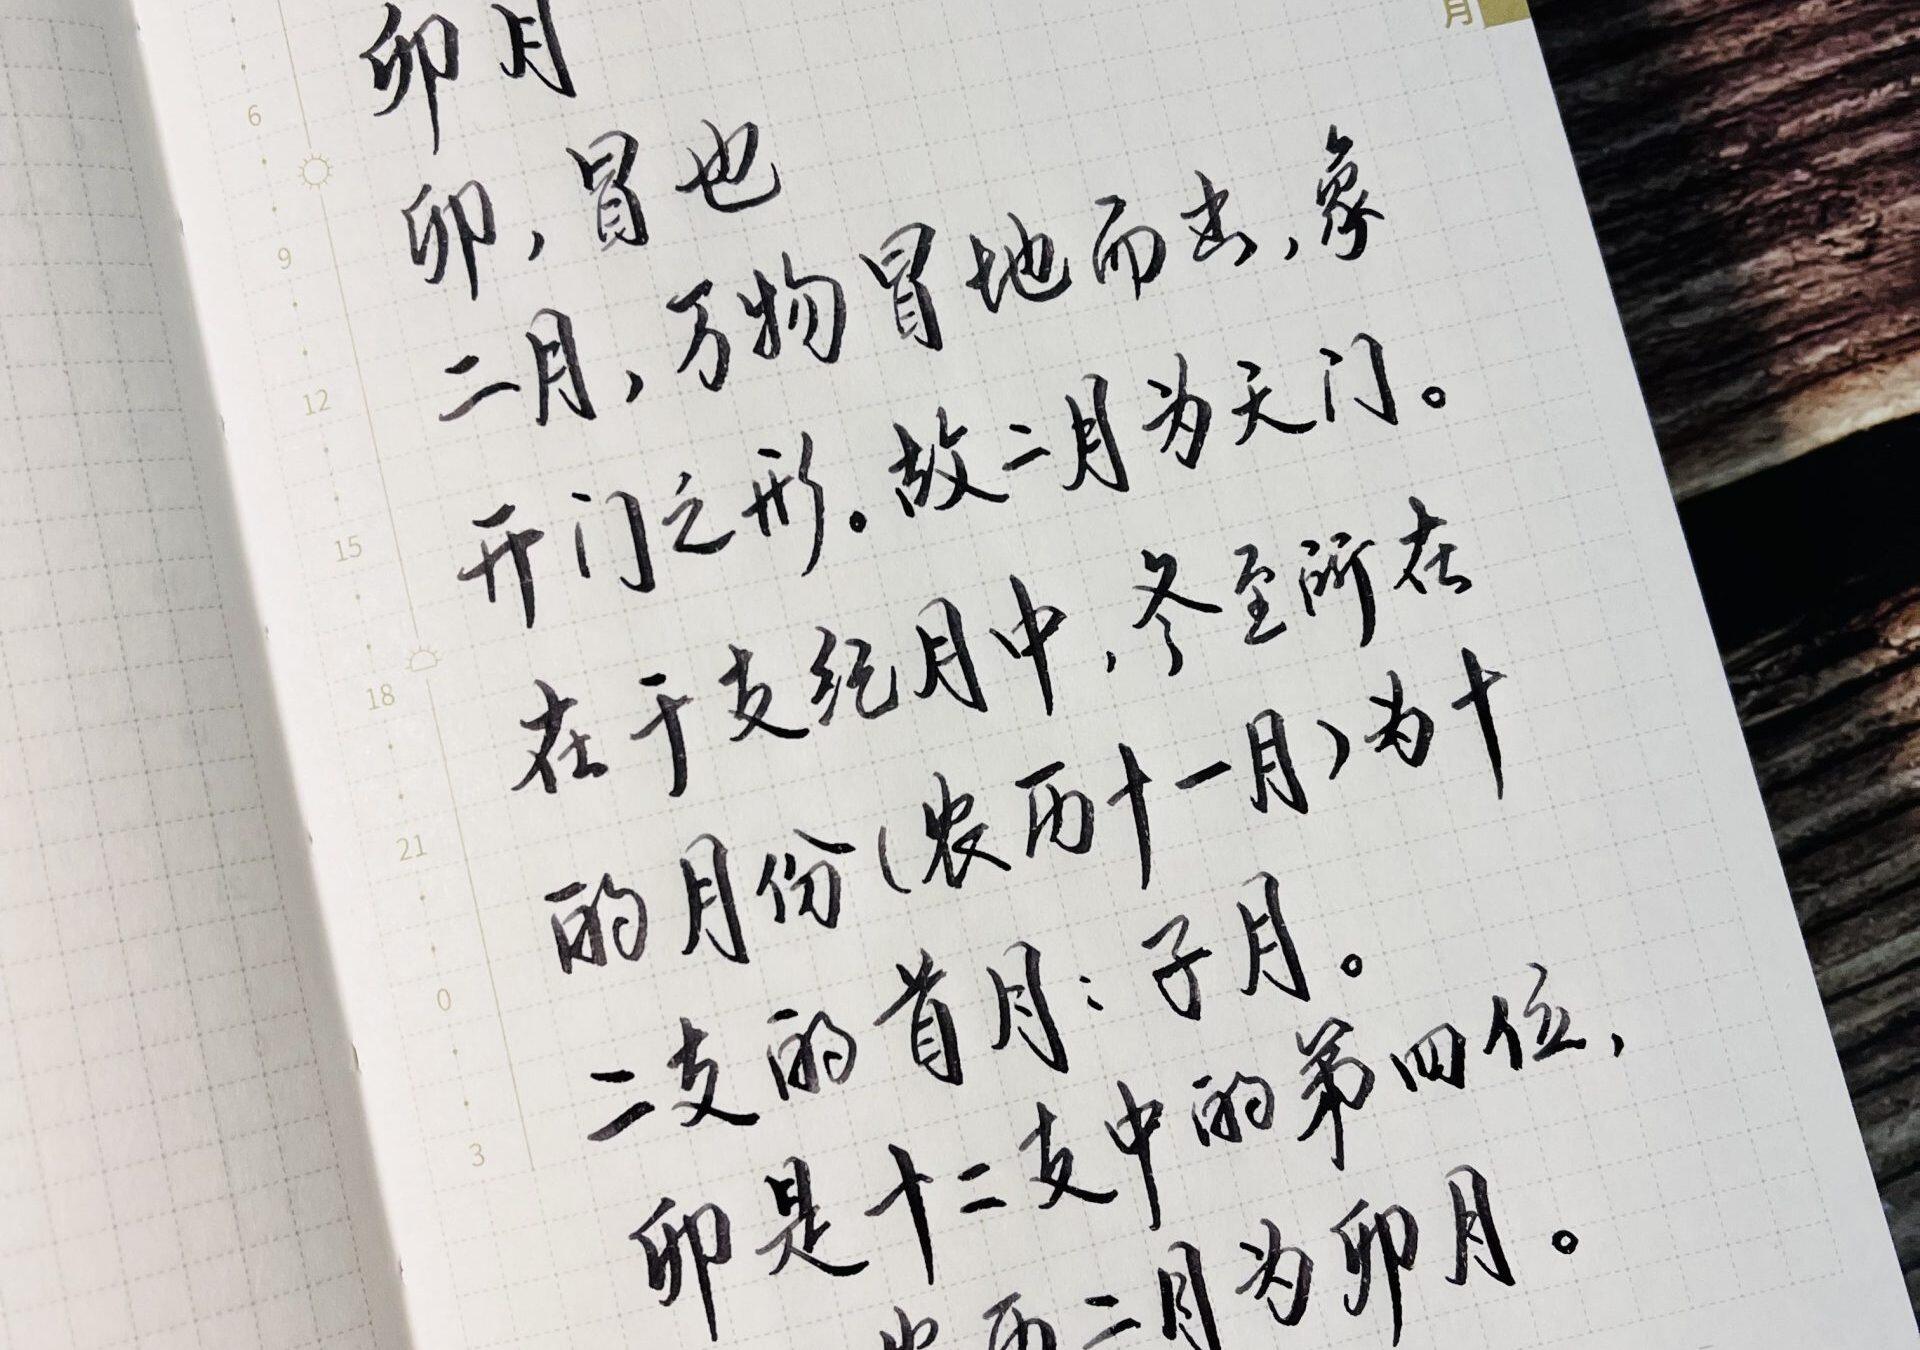 月
卯月
卯，冒也
二月，万物冒地而出，象
开门之形。故二月为天门。
在干支纪月中，冬至所在
的月份（农历十一月）为十
二支的首月：子月。
卯是十二支中的第四位，
农历二月为卯月。
6
9
12
15
18
21
0
3